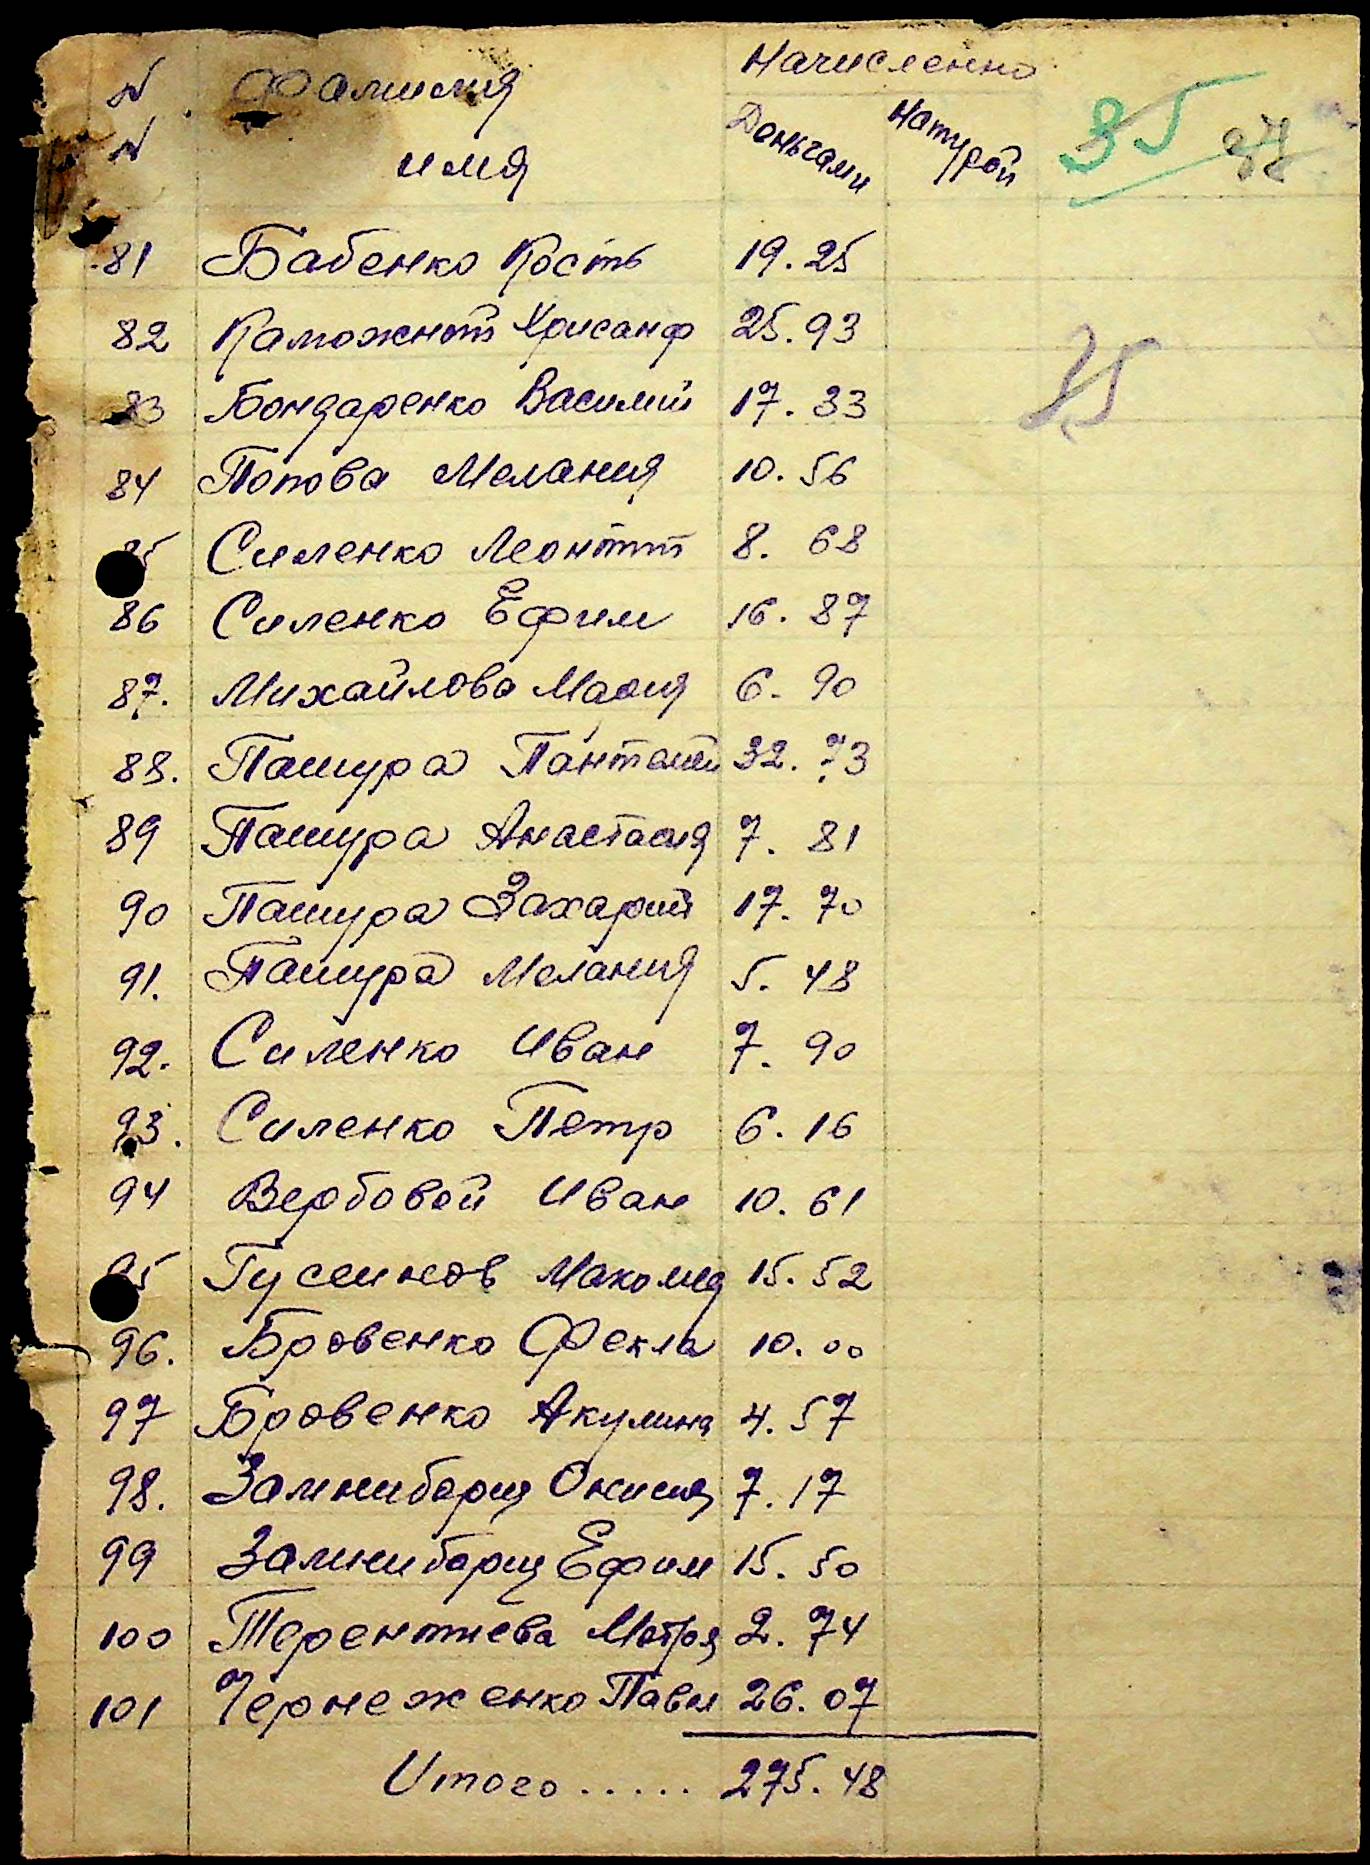 № Фамилия Начисленно
№ имя Деньгами Натурой 35 37
81 Бабенко Кость 19.25
82 Каможный Хрисанф 25.93
83 Бондаренко Василий 17.33
35
84 Попова Мелания 10.56
85 Силенко Леонтий 8.68
86 Силенко Ефим 16.87
87. Михайлова Мария 6.90
88. Пашура Пантелей 32.73
89 Пашура Анастасия 7.81
90 Пашура Захарий 17.70
91. Пашура Мелания 5.48
92. Силенко Иван 7.90
93. Силенко Петр 6.16
94 Вербовой Иван 10.61
95 Гусеинов Макомед 15.52
96. Бровенко Фекла 10.00
97 Бровенко Акулина 4.57
98. Замниборщ 7.17
99 Замниборщ Ефим 15.50
100 Терентиева Матря 2.74
101 Чернеженко Павел 26.07
Итого ..... 275.48